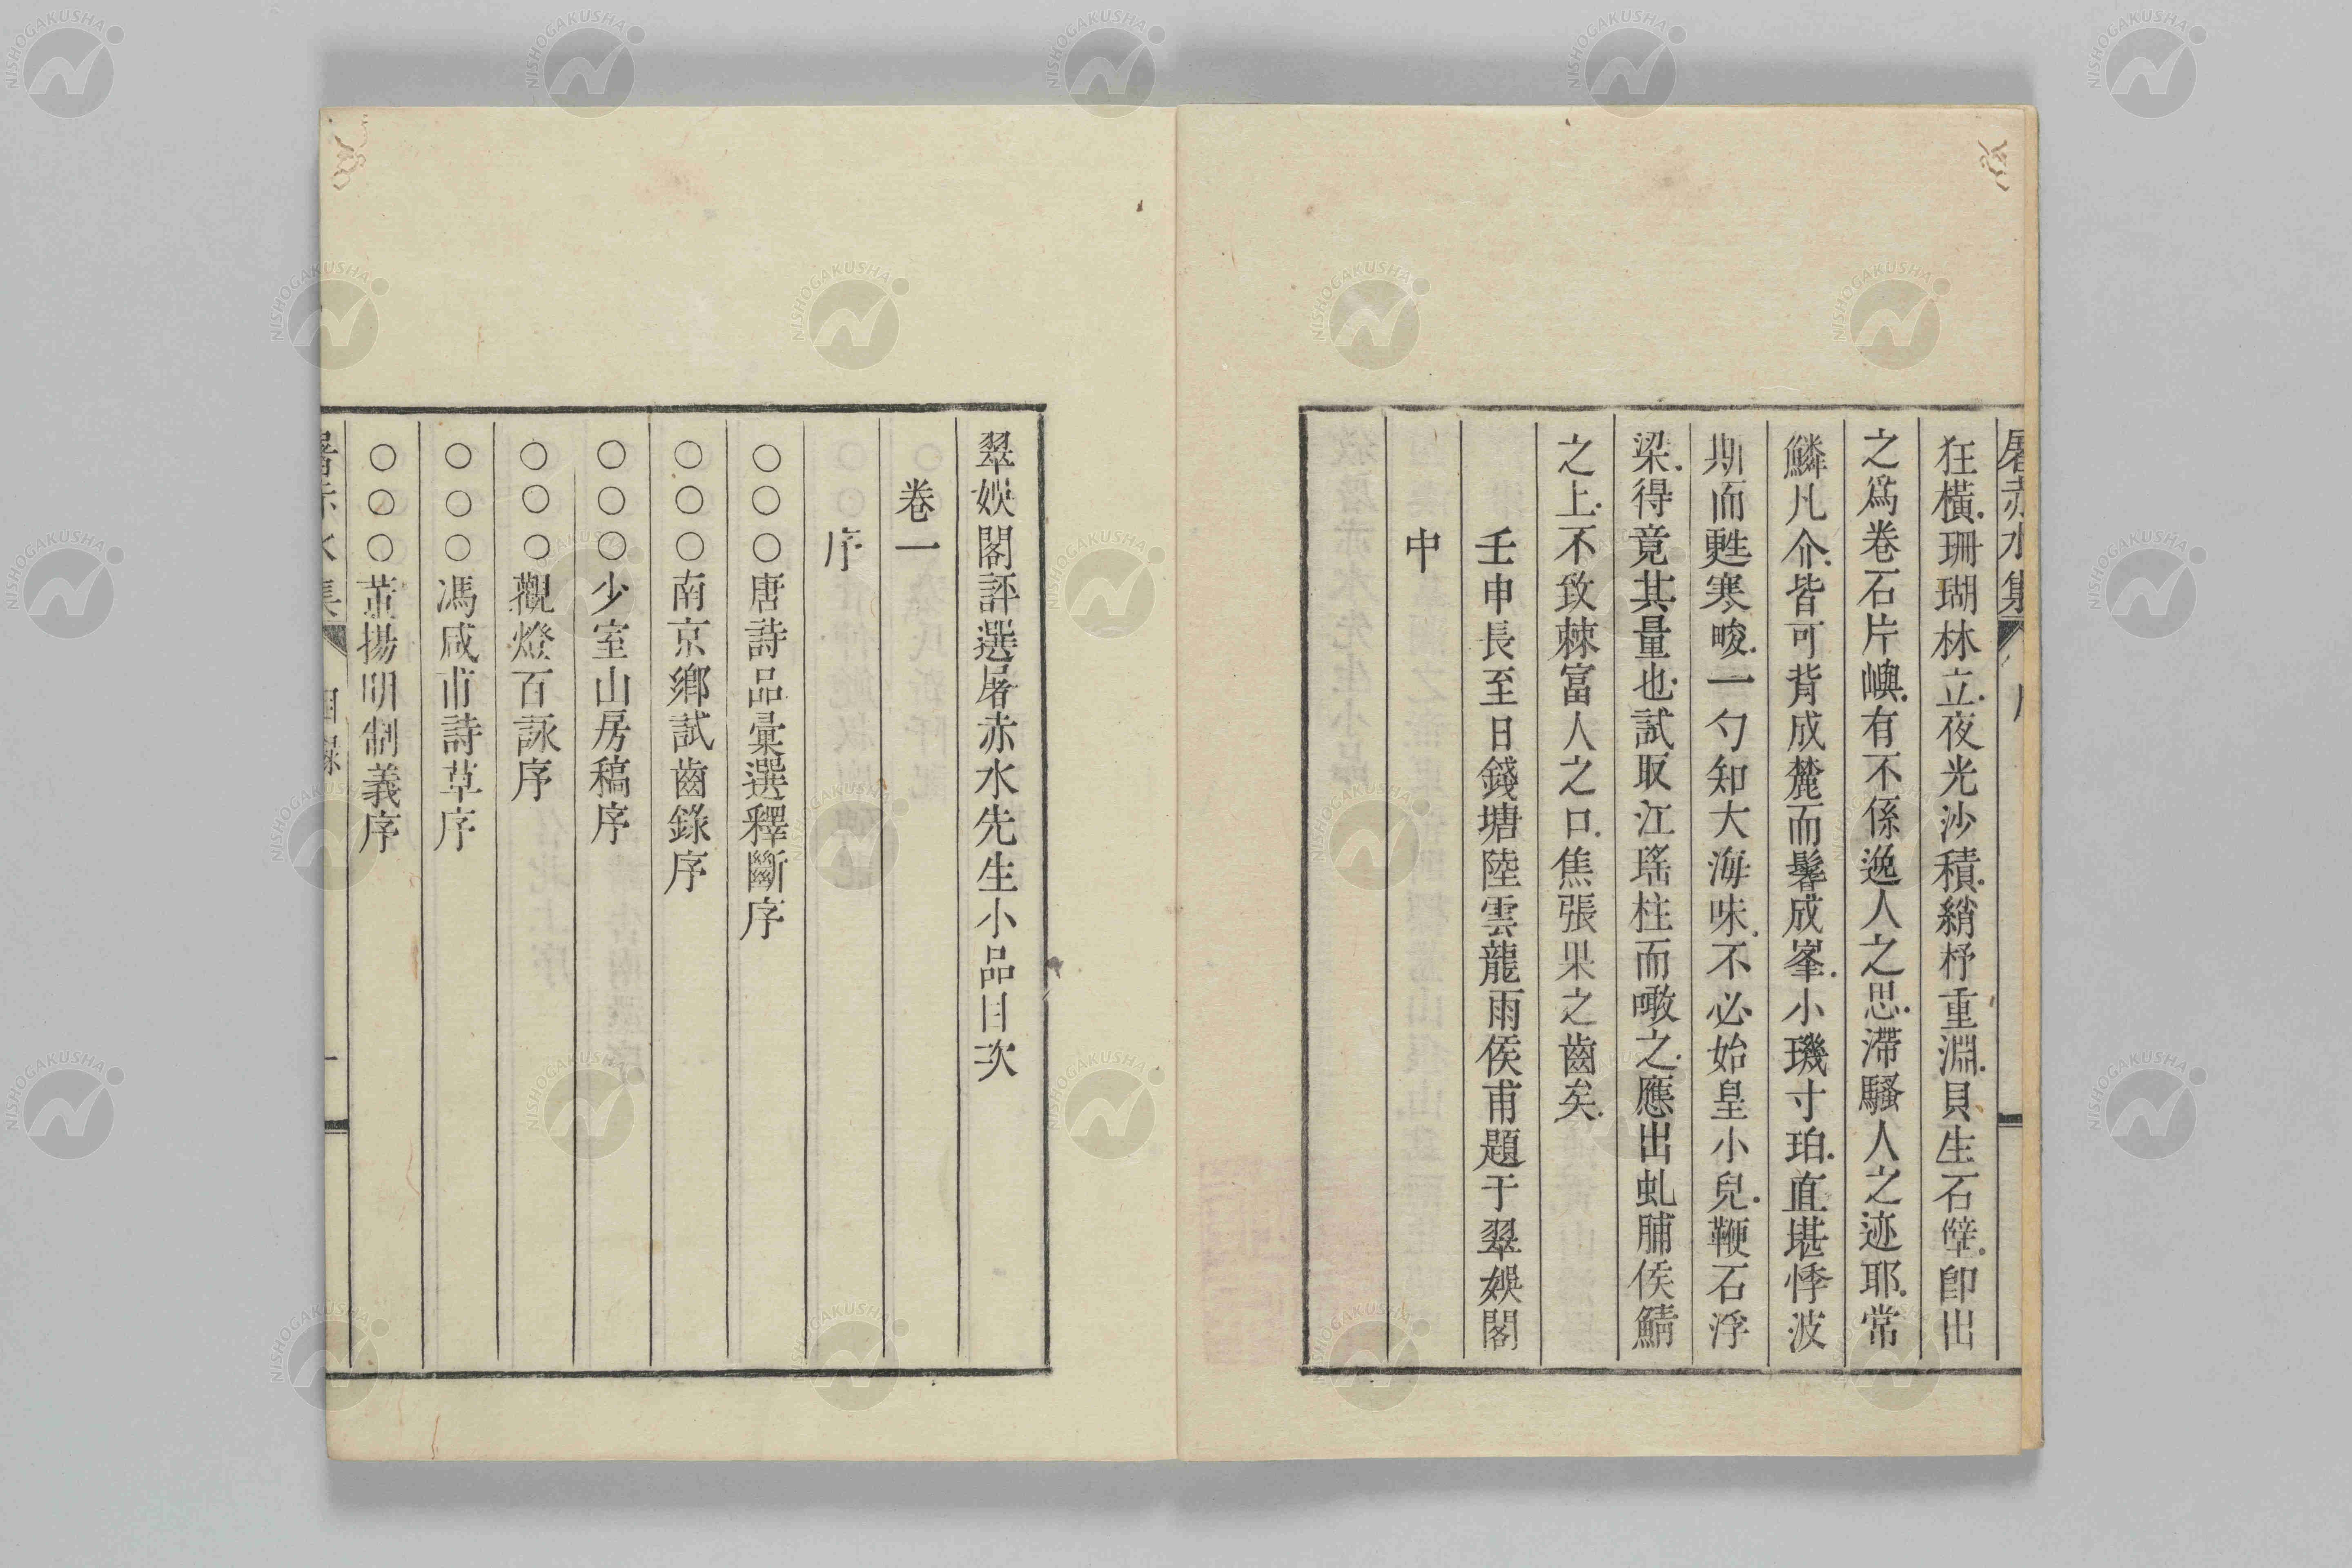 屠赤水集 序
狂橫.珊瑚林立.夜光沙積.綃杼重淵.貝生石壁.卽出
之爲卷石片嶼.有不係逸人之思.滯騷人之迹耶.常
鱗凡介.皆可背成麓而鬐成峯.小璣寸珀.直堪悸波
斯而甦寒畯.一勺知大海味.不必始皇小兒.鞭石浮
梁.得竟其量也.試取江瑤柱而噉之.應出虬脯侯鯖
之上.不致棘富人之口.焦張果之齒矣.
壬申長至日錢塘陸雲龍雨侯甫題于翠娛閣
中
翠娛閣評選屠赤水先生小品目次
卷一
序
○○○唐詩品彙選釋斷序
○○○南京鄉試齒錄序
○○○少室山房稿序
○○○觀燈百詠序
○○○馮咸甫詩草序
○○○董揚明制義序
屠赤水集 目錄 一
NISHOGAKUSHA